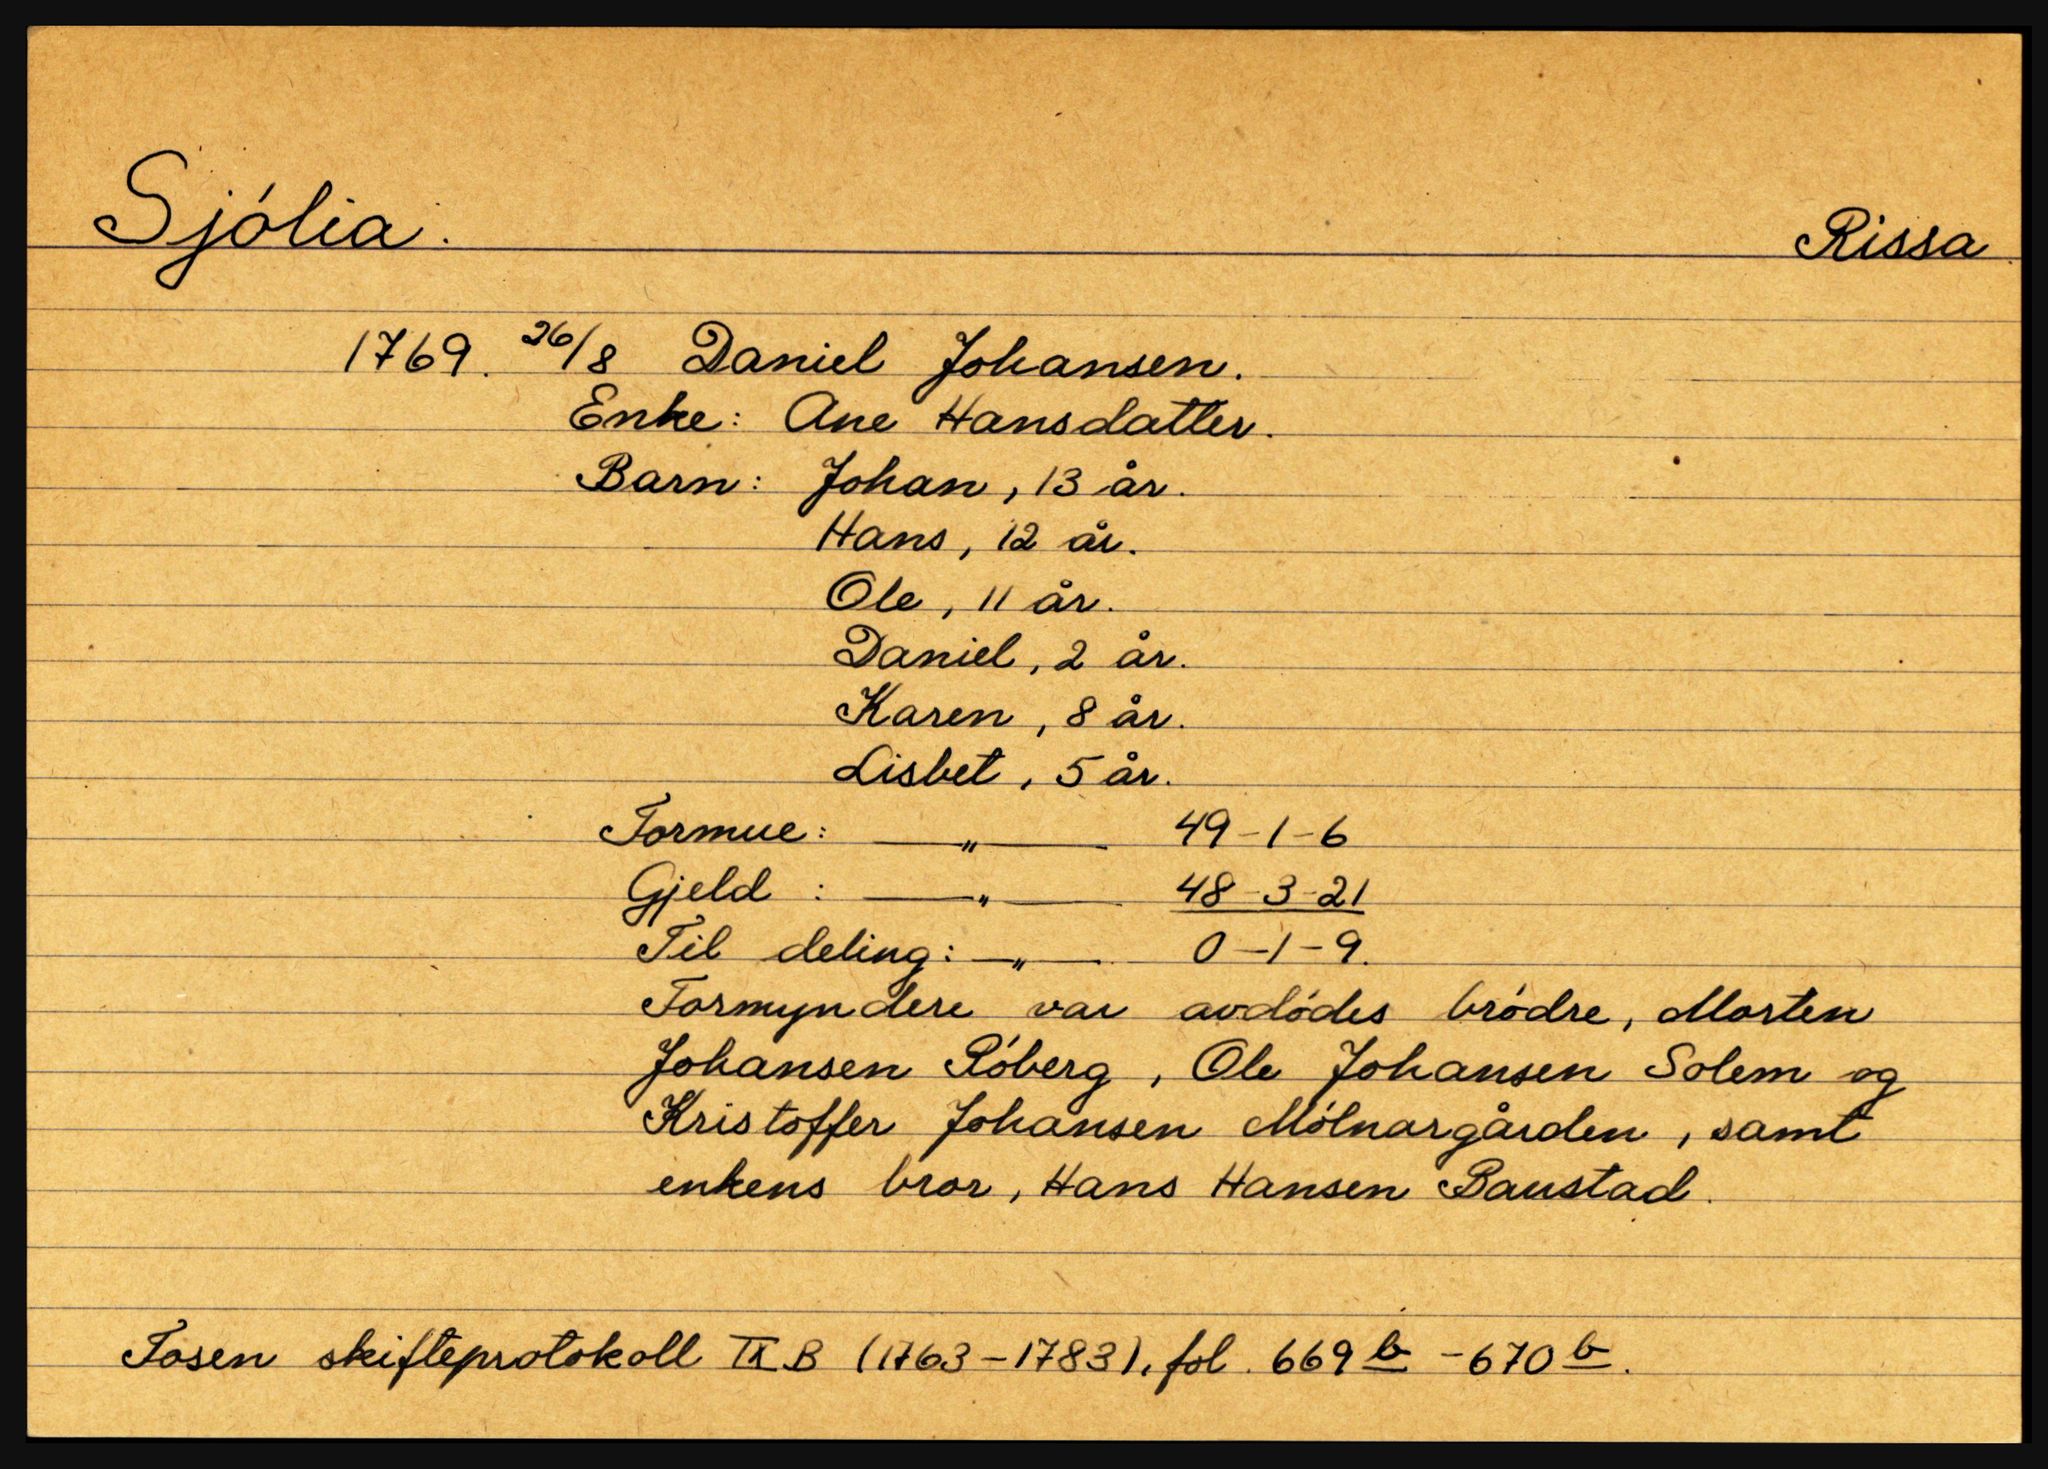 Sjólia. Rissa
1769. 26/8 Daniel Johansen.
Enke: Ane Hansdatter.
Barn: Johan, 13 år.
Hans, 12 år.
Ole, 11 år.
Daniel, 2 år.
Karen, 8 år.
Lisbet, 5 år.
Formue: —„— 49-1-6
Gjeld : —„— 48-3-21
Til deling: —„— 0-1-9.
Formyndere var avdódes bródre, Morten
Johansen Róberg, Ole Johansen Solem og
Kristoffer Johansen Mólnargården, samt
enkens bror, Hans Hansen Baustad.
Fosen skifteprotokoll IX B (1763-1783), fol. 669 b - 670 b.